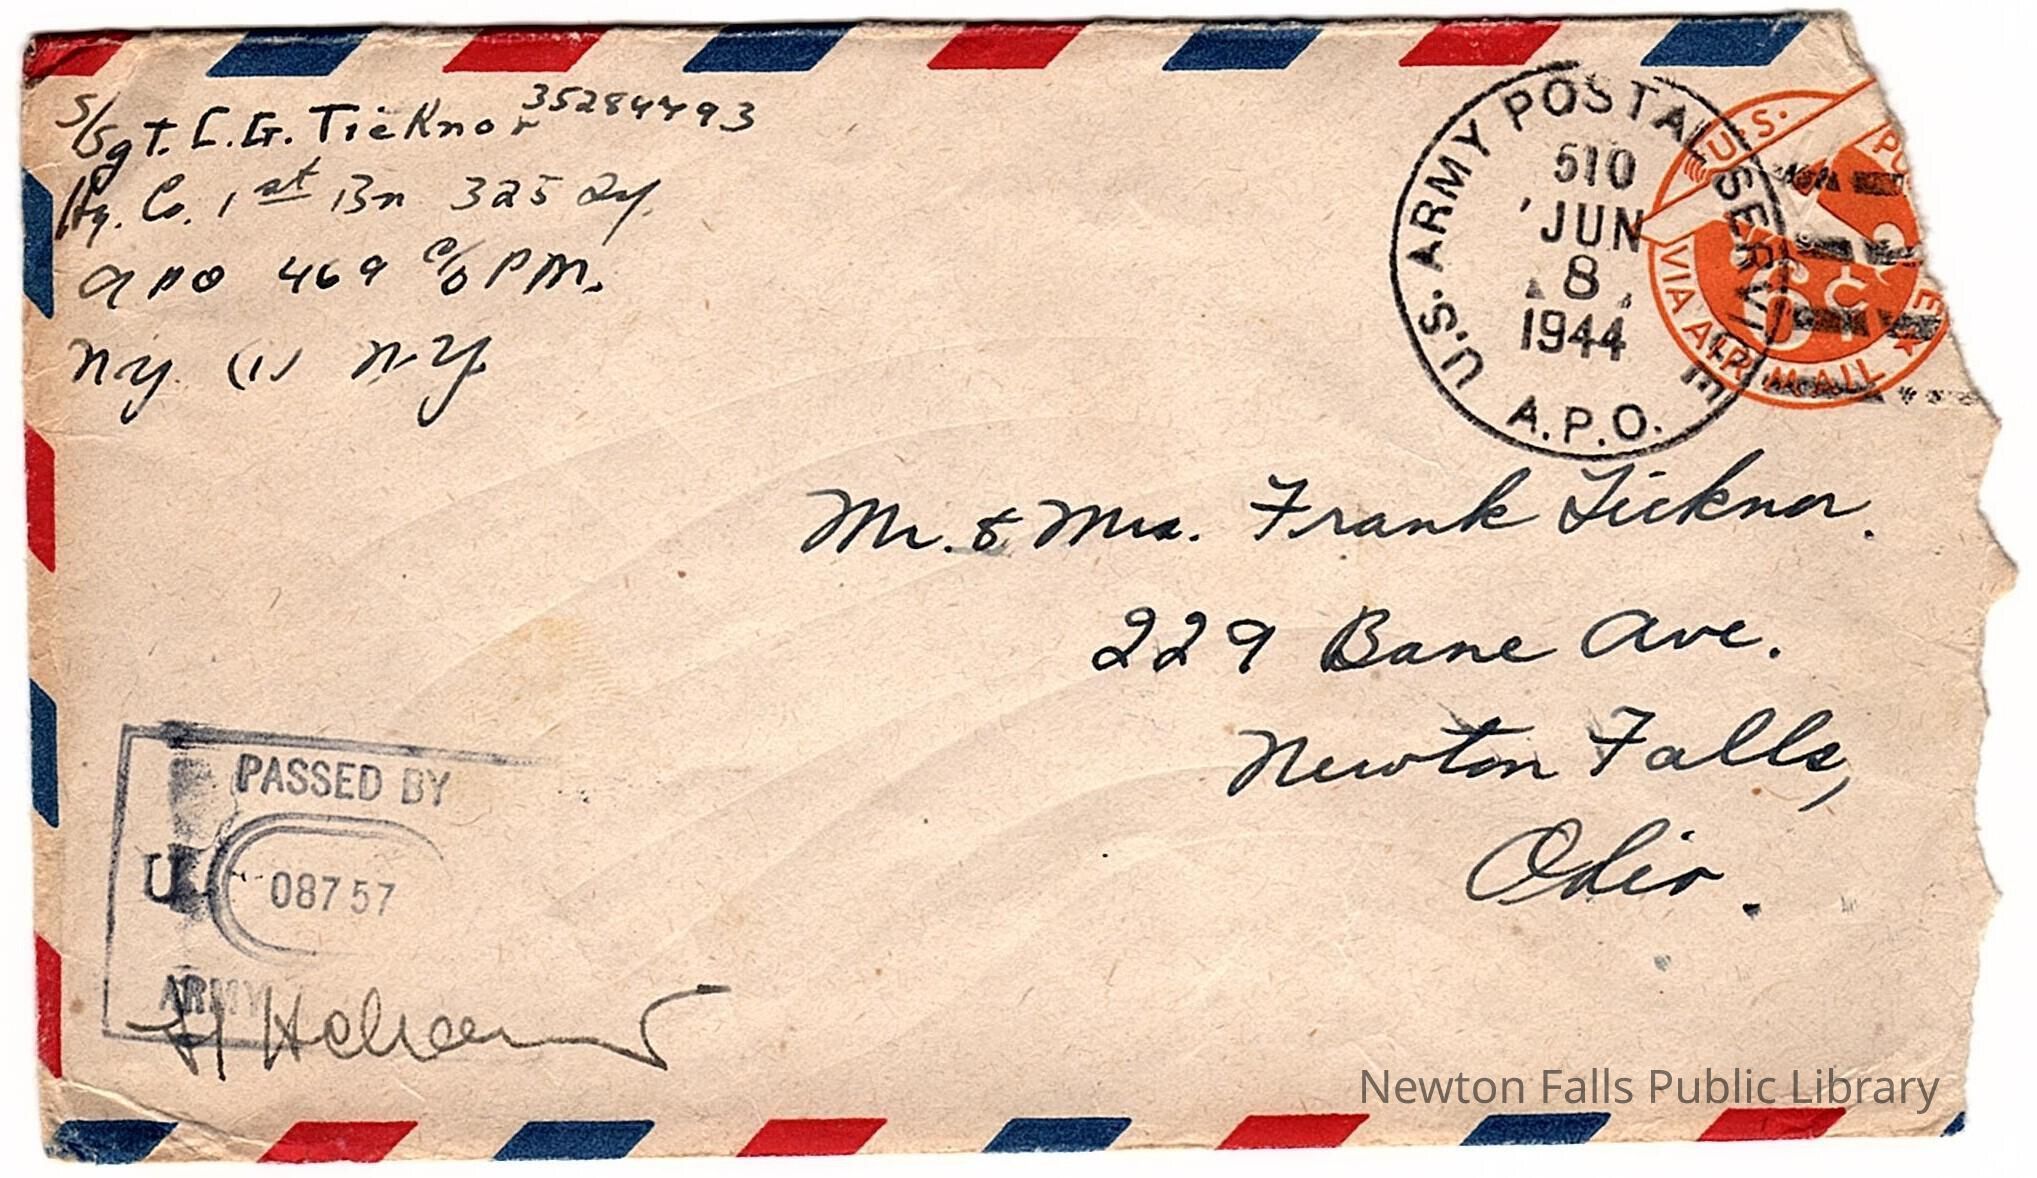 S/Sgt. L.G. Ticknor 35284493
Hq. Co. 1st Bn 325 Inf.
APO 469 c/o PM.
NY. (1) N.Y.
U.S. ARMY POSTAL SERVICE
A.P.O.
510
JUN
8
1944
U.S. PO
6c
VIA AIR MAIL
Mr. & Mrs. Frank Ticknor.
229 Bane Ave.
Newton Falls,
Ohio.
PASSED BY
U.
08757
ARMY
Newton Falls Public Library